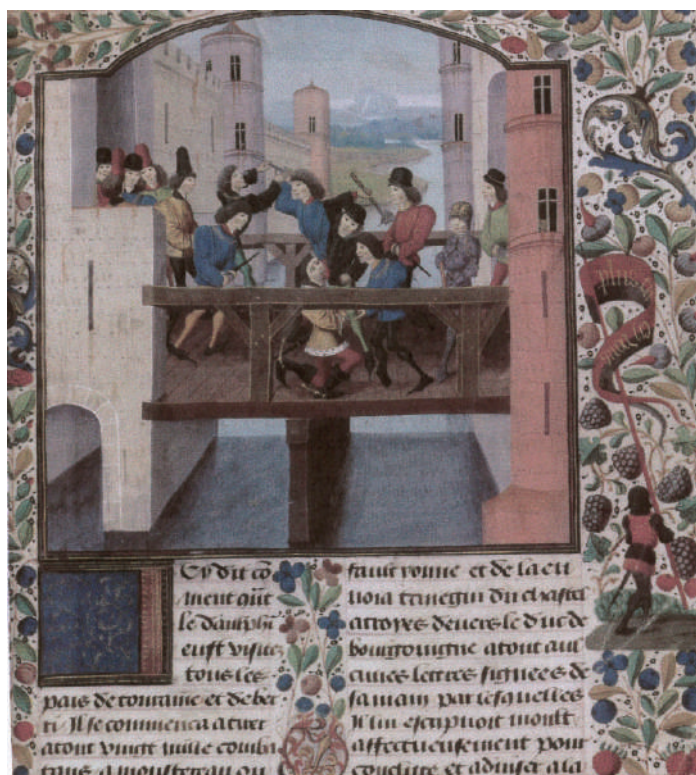 Cy dit cõ
ment qũt
le dauphĩ
eust visite
tous les
pais de touraine et de ber
ri Il se commenca a tirer
atout vingt mille comba
tans a monstreau ou
faut yonne et de la en
uoia tanegui du chastel
a troyes deuers le duc de
bourgoingne atout aul
cunes lettres signees de
sa main par lesquelles
Il lui escripuoit moult
affectueusement pour
conclure et aduiser a la